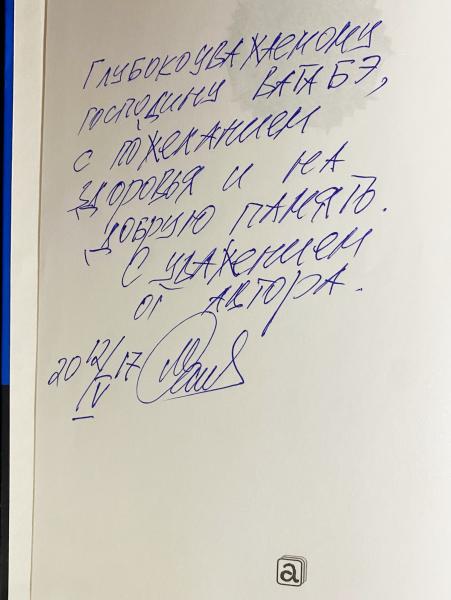 Глубокоуважаемому
господину ВАТАБЭ,
с пожеланием
здоровья и на
добрую память.
С уважением
от автора.
20 12/IV 17
a